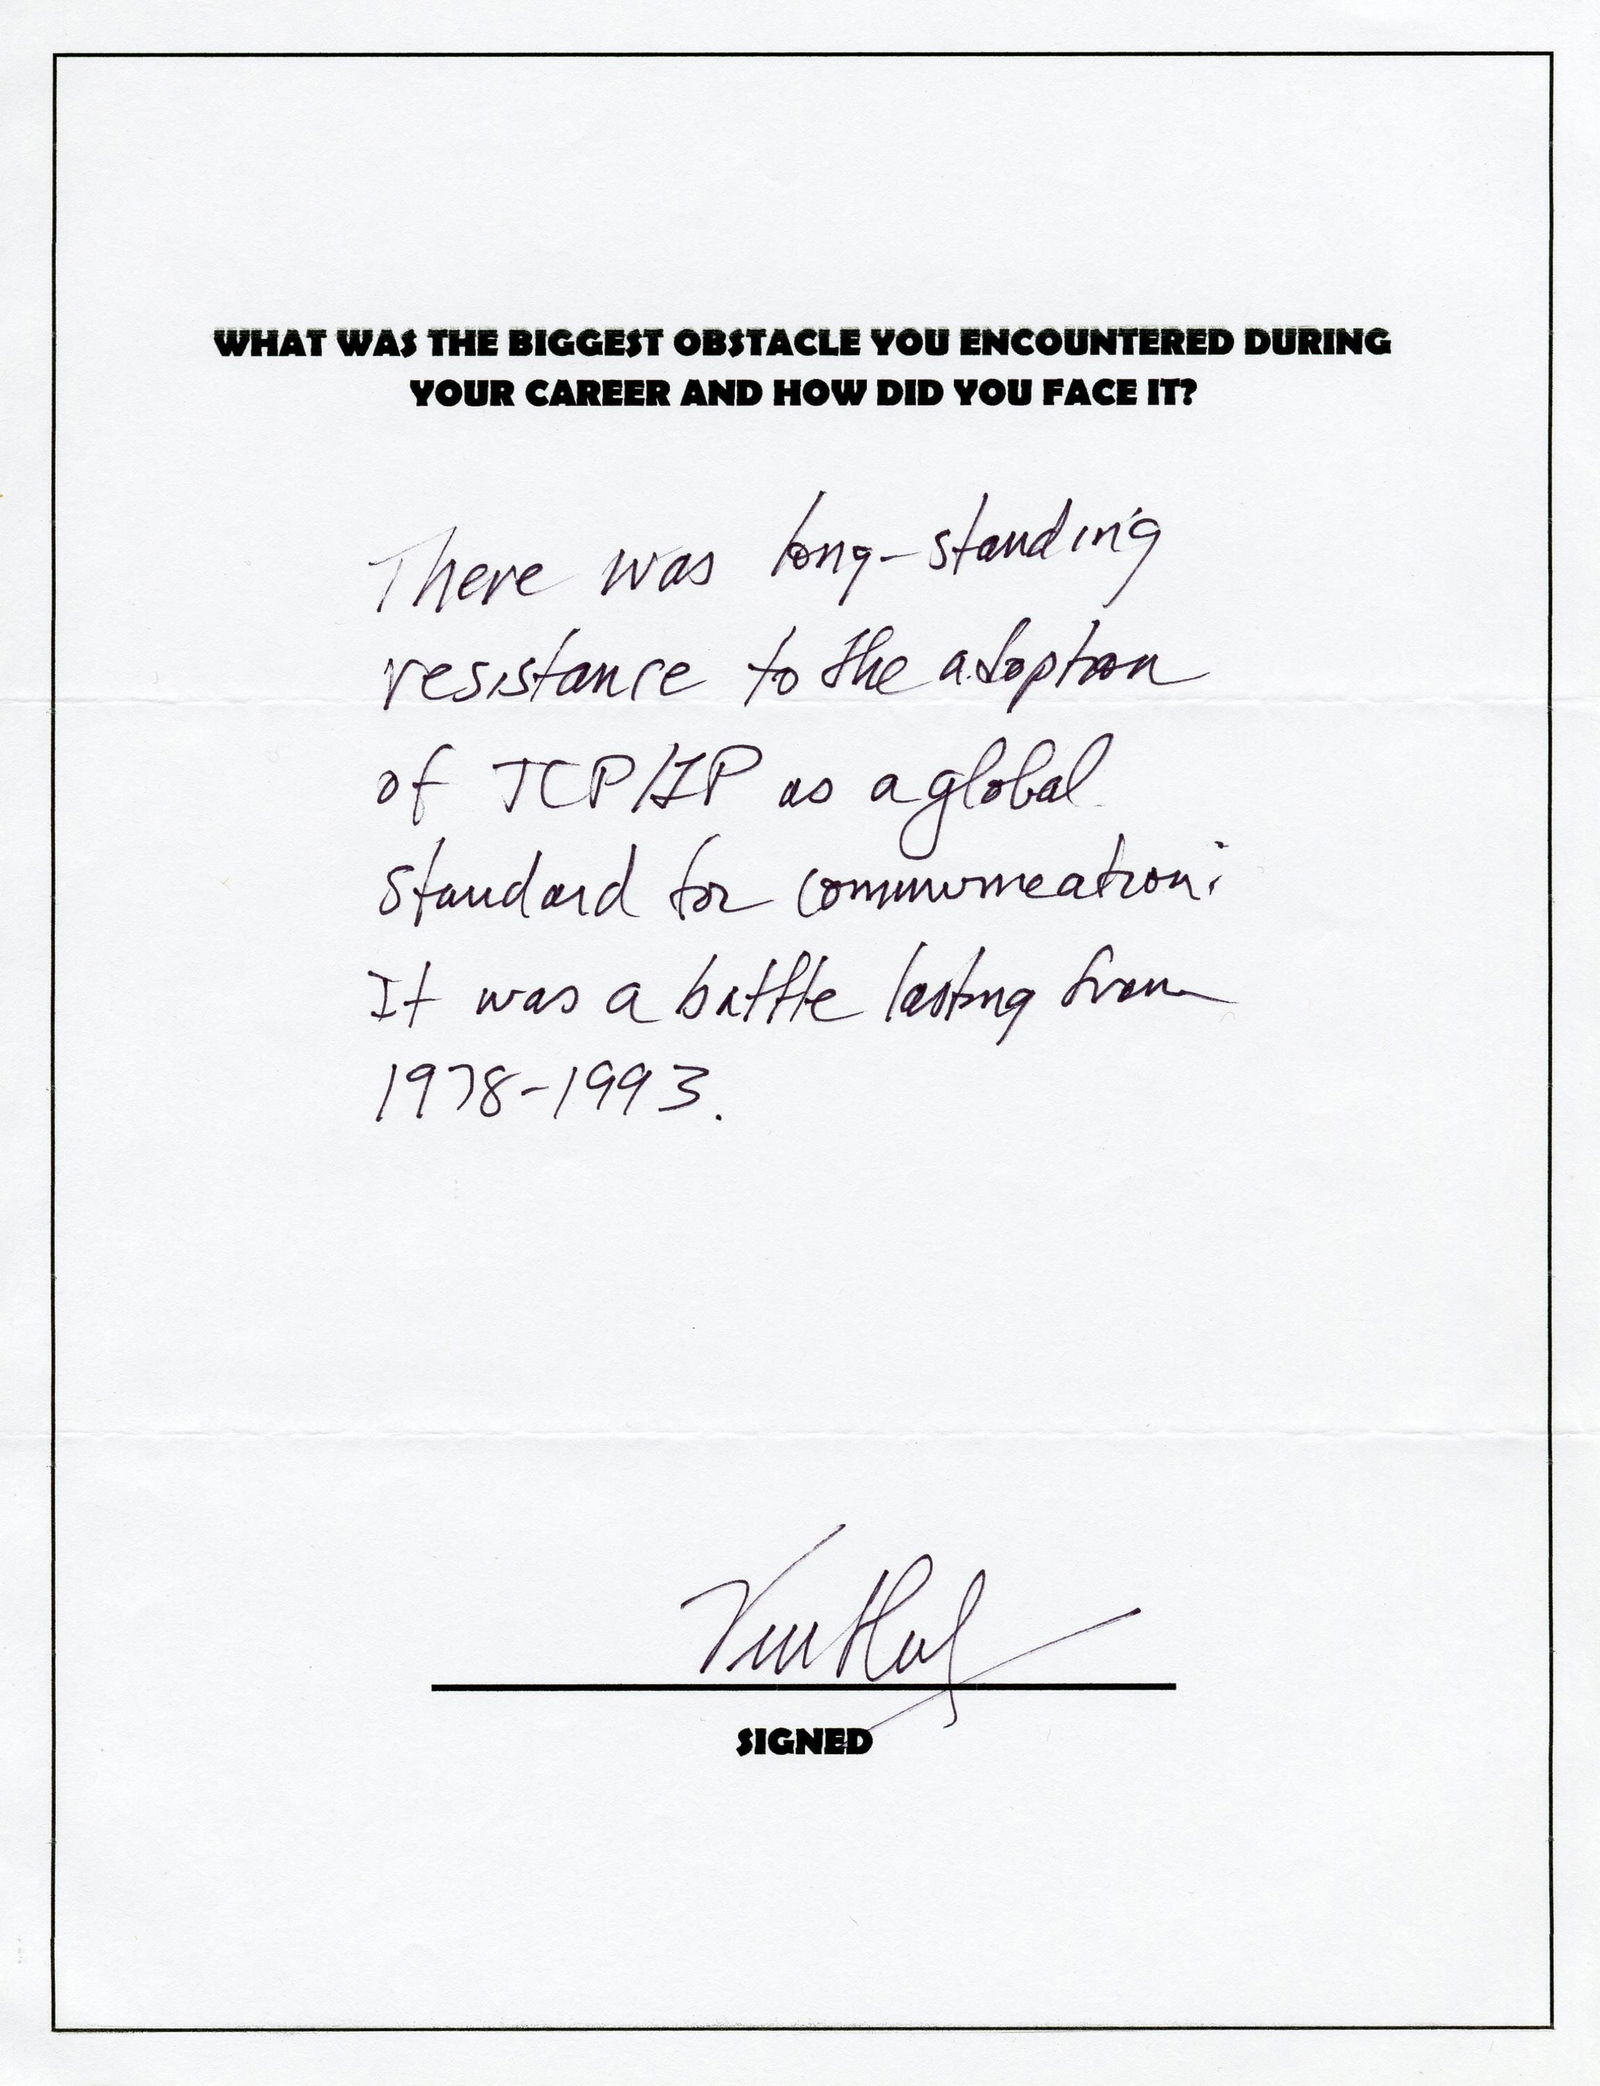 WHAT WAS THE BIGGEST OBSTACLE YOU ENCOUNTERED DURING
YOUR CAREER AND HOW DID YOU FACE IT?
There was long-standing
resistance to the adoption
of TCP/IP as a global
standard for communication:
It was a battle lasting from
1978-1993.
SIGNED